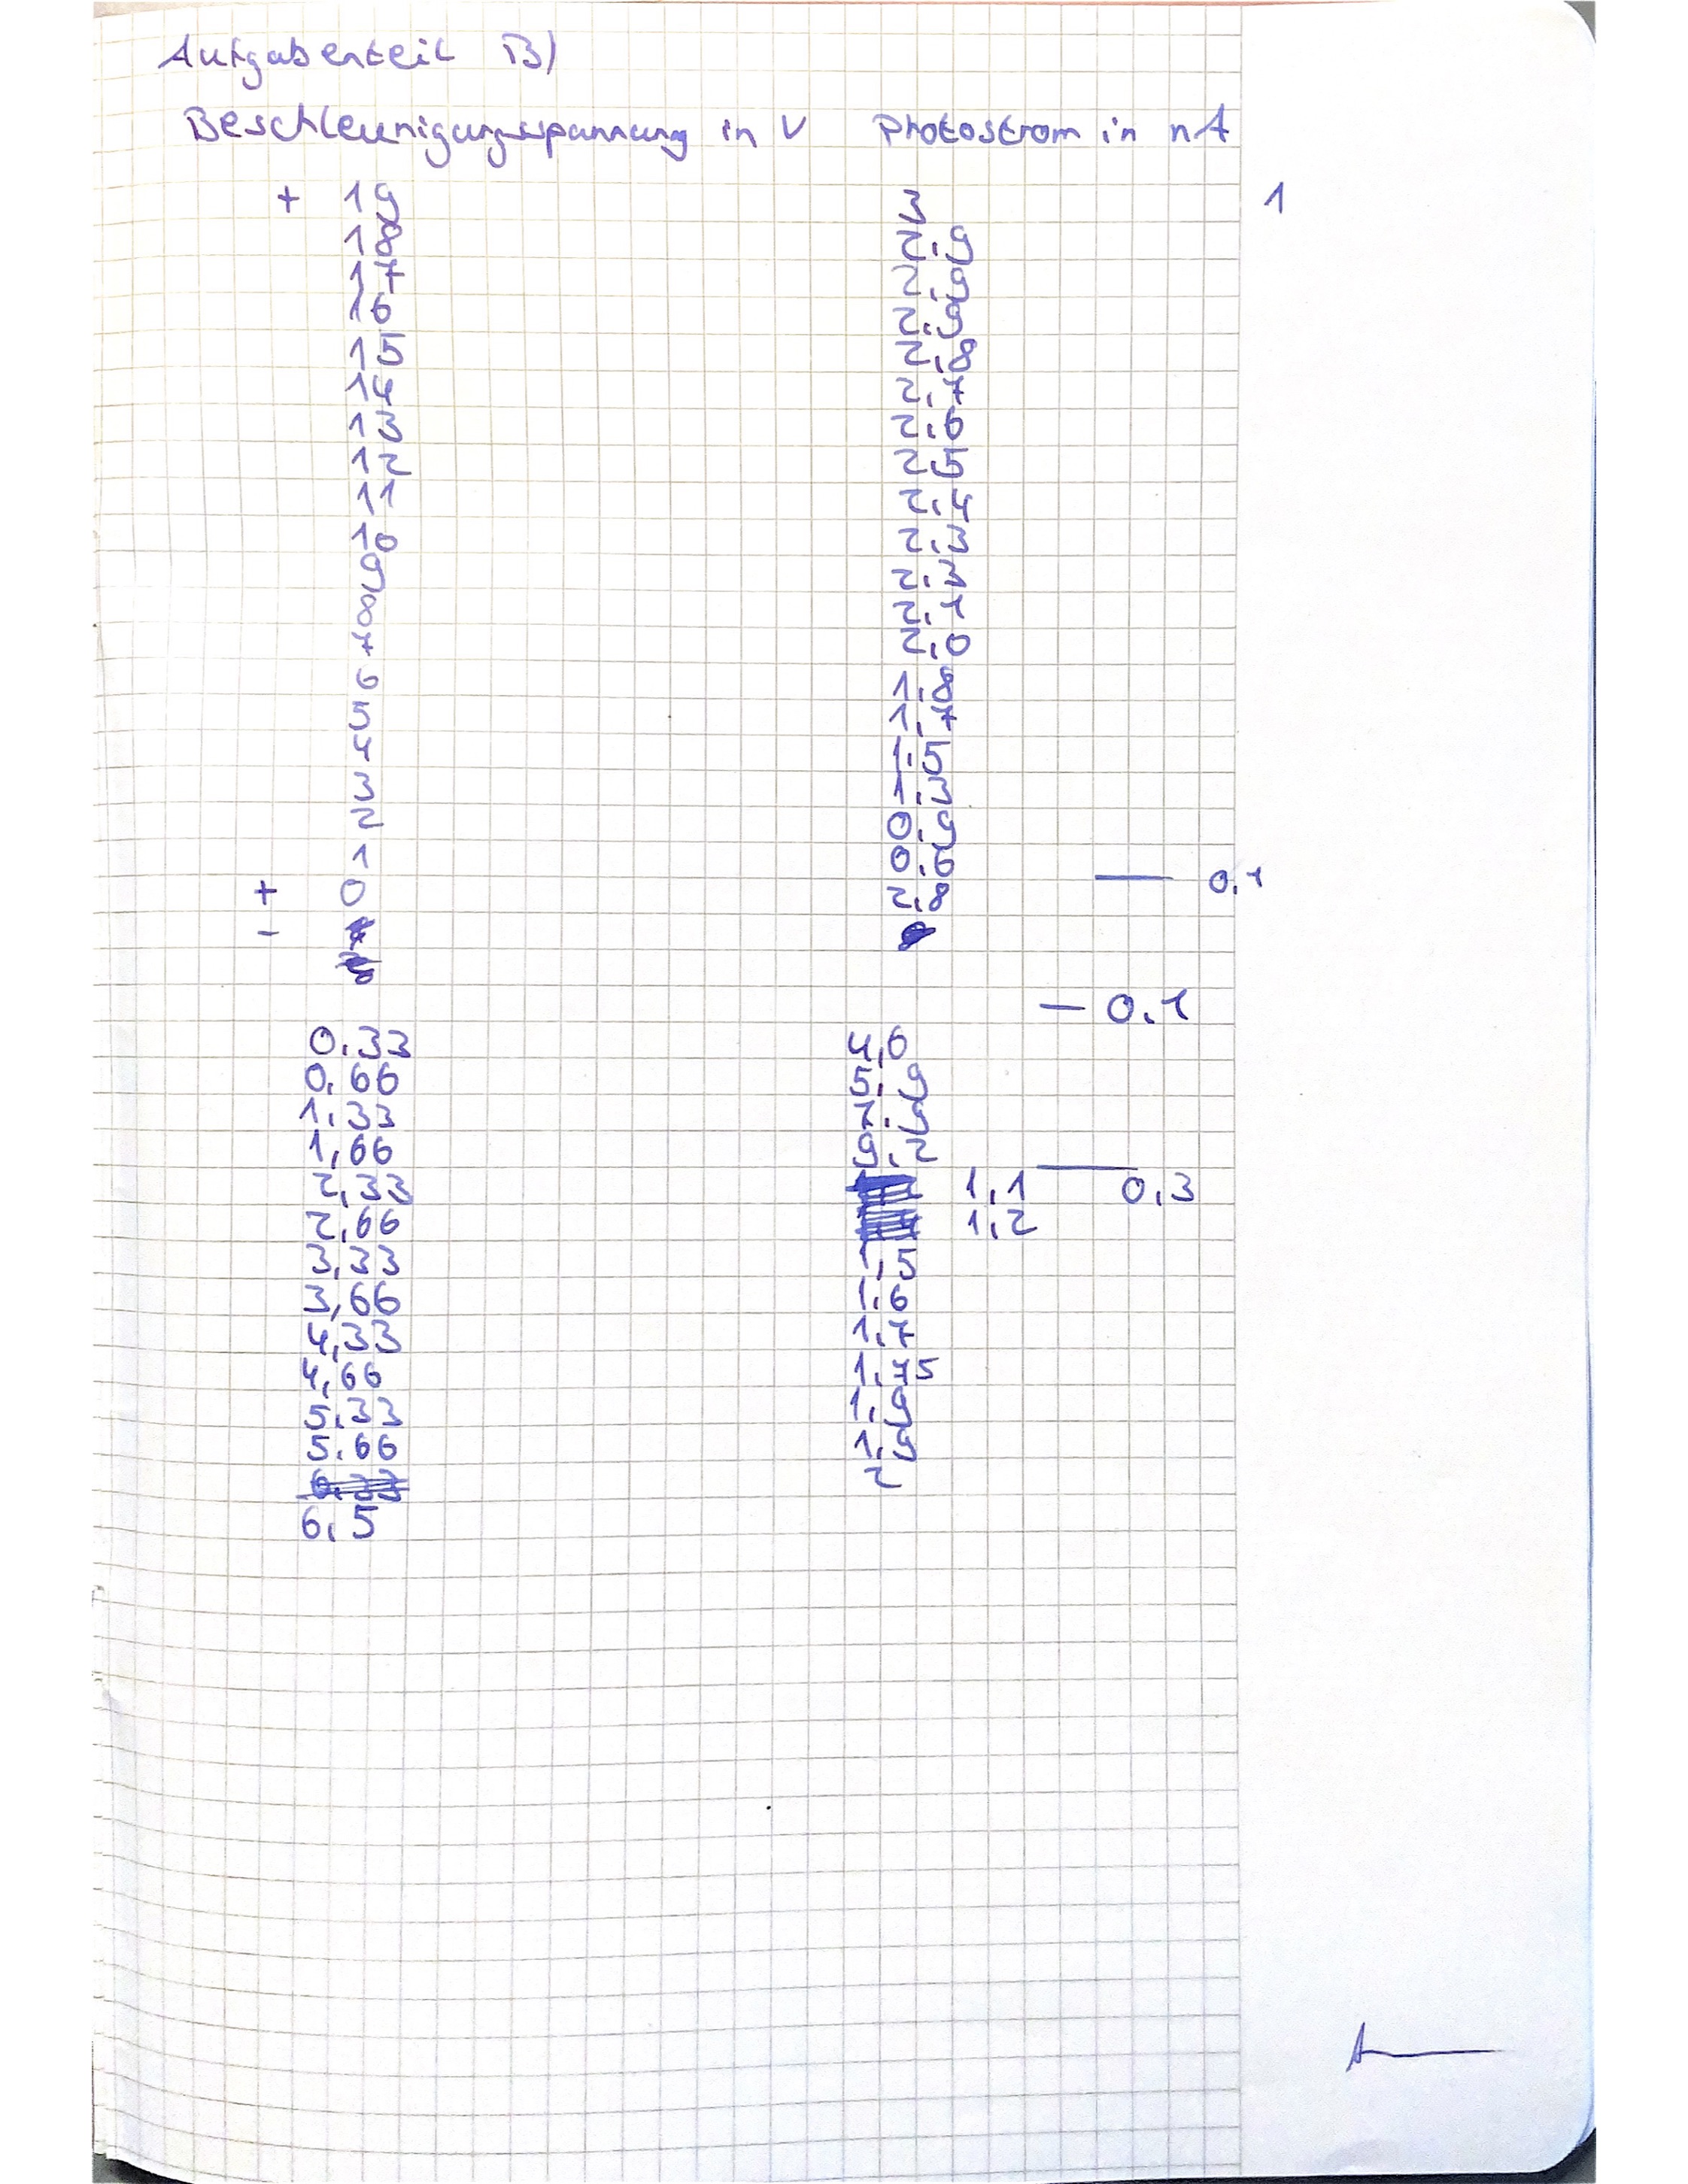 Aufgabenteil B)
Beschleunigungsspannung in V Photostrom in nA
+ 19 3 1
18 2.9
17 2.9
16 2.9
15 2.8
14 2.7
13 2.6
12 2.5
11 2.4
10 2.3
9 2.2
8 2.1
7 2.0
6 1.8
5 1.7
4 1.5
3 1.3
2 0.9
1 0.6
+ 0 2.8 0.1
-
- 0.1
0.33 4,6
0,66 5,9
1.33 7.9
1,66 9.2
2,33 1,1 0,3
2,66 1,2
3,33 1,5
3,66 1.6
4,33 1,7
4,66 1.75
5.33 1.9
5.66 1.9
6.33 2
6,5